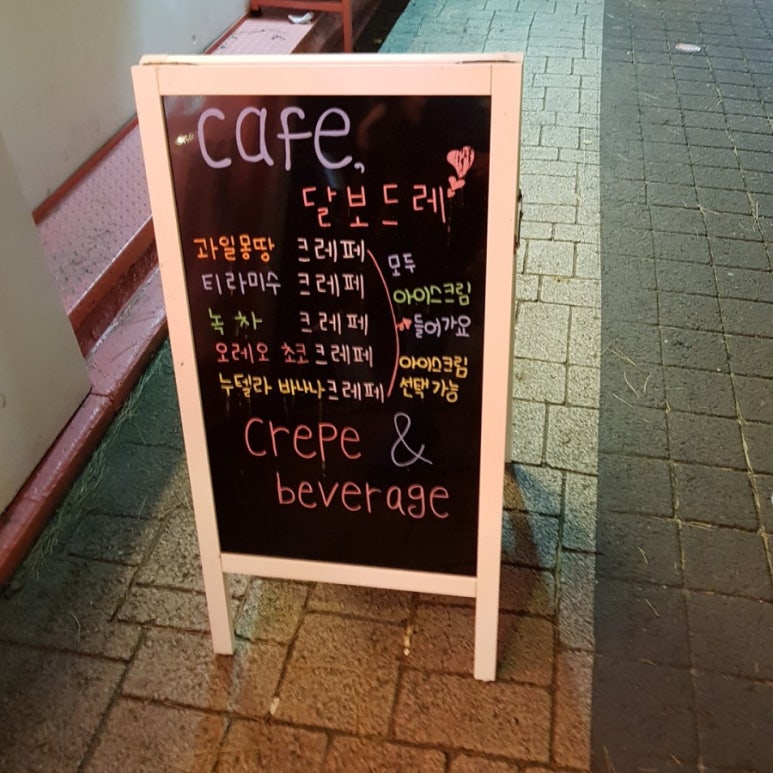 cafe,
달보드레
과일몽땅 크레페
티라미수 크레페
녹차 크레페
오레오 초코 크레페
누텔라 바나나크레페
모두
아이스크림
들어가요
아이스크림
선택가능
crepe &
beverage